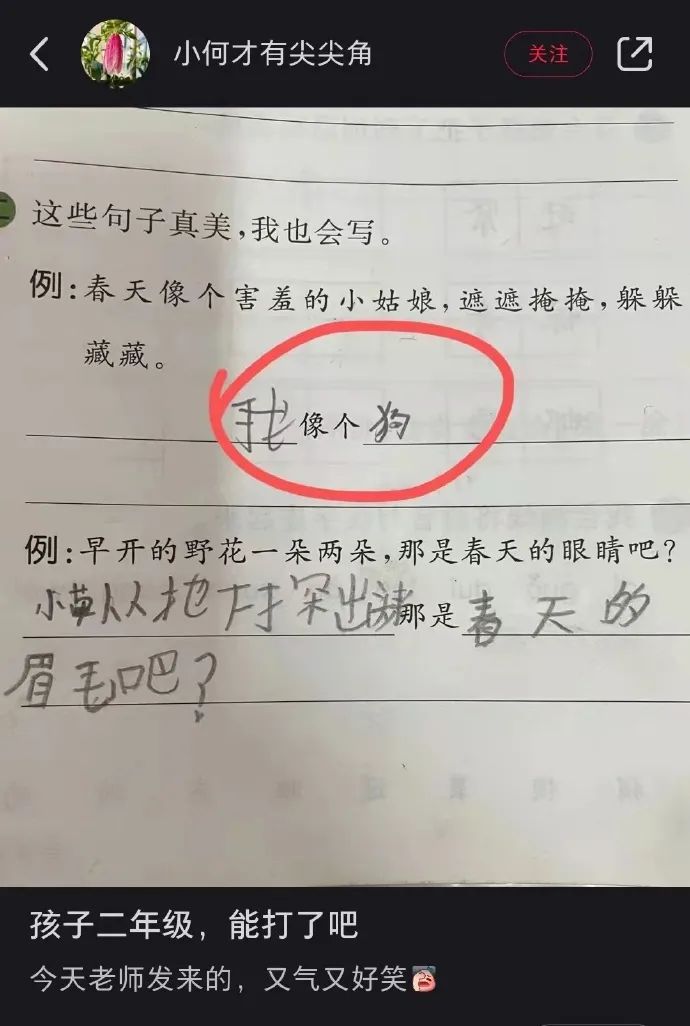 小何才有尖尖角
关注
二
这些句子真美,我也会写。
例:春天像个害羞的小姑娘,遮遮掩掩,躲躲
藏藏。
我像个狗
例:早开的野花一朵两朵,那是春天的眼睛吧?
小草从地 探出 那是春天的
眉毛吧?
孩子二年级，能打了吧
今天老师发来的，又气又好笑